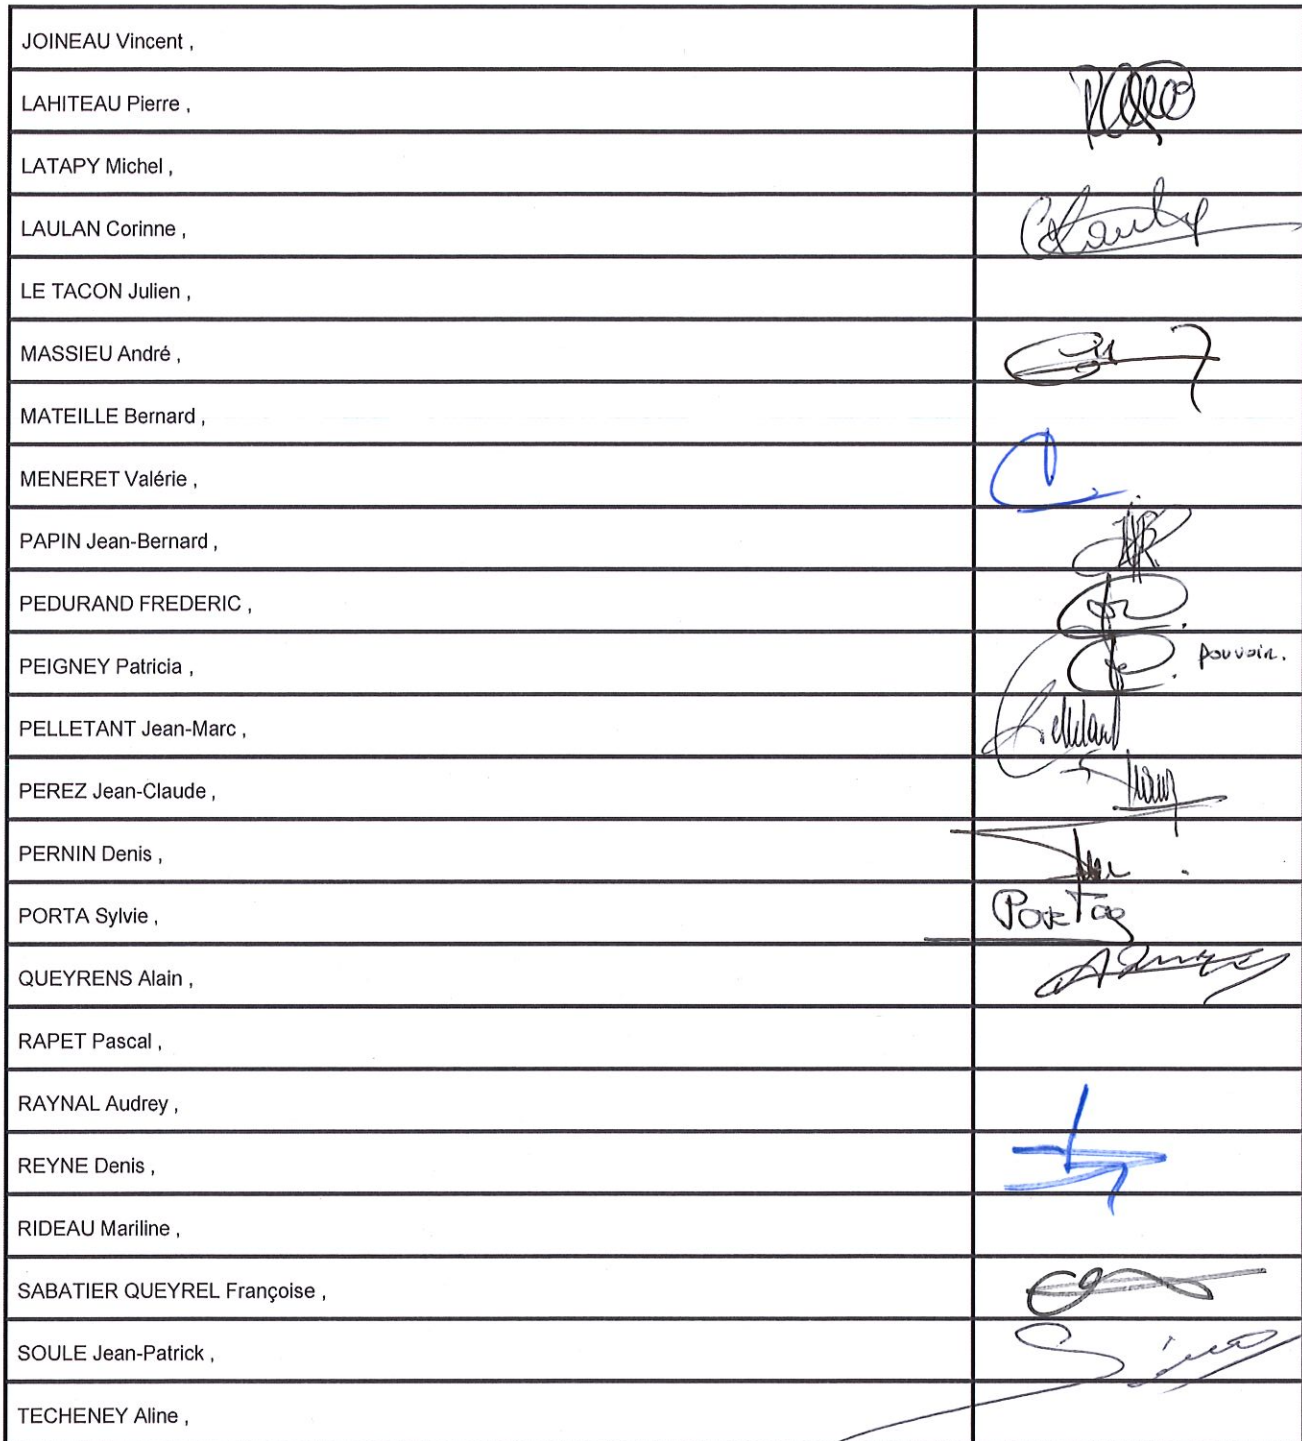 JOINEAU Vincent ,
LAHITEAU Pierre ,
LATAPY Michel ,
LAULAN Corinne ,
LE TACON Julien ,
MASSIEU André ,
MATEILLE Bernard ,
MENERET Valérie ,
PAPIN Jean-Bernard ,
PEDURAND FREDERIC ,
PEIGNEY Patricia , pouvoir.
PELLETANT Jean-Marc ,
PEREZ Jean-Claude ,
PERNIN Denis ,
PORTA Sylvie ,
QUEYRENS Alain ,
RAPET Pascal ,
RAYNAL Audrey ,
REYNE Denis ,
RIDEAU Mariline ,
SABATIER QUEYREL Françoise ,
SOULE Jean-Patrick ,
TECHENEY Aline ,